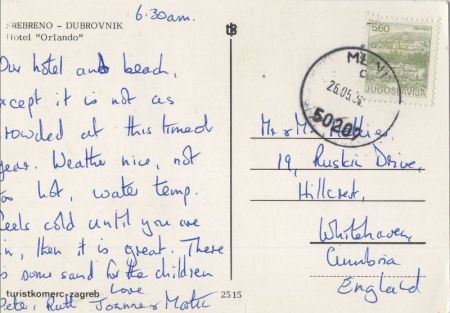 6.30am.
SREBRENO - DUBROVNIK
Hotel "Orlando"
Our hotel and beach,
except it is not as
crowded at this time of
year. Weather nice, not
too hot, water temp.
feels cold until you are
in, then it is great. There
is some sand for the children
Love
Pete, Ruth Joanne
turistkomerc-zagreb
2515
tB
5.60
JUGOSLAVIJA
26.05.
50207
Mr & Mrs
19, Ruskin Drive,
Hillcrest,
Whitehaven,
Cumbria
England